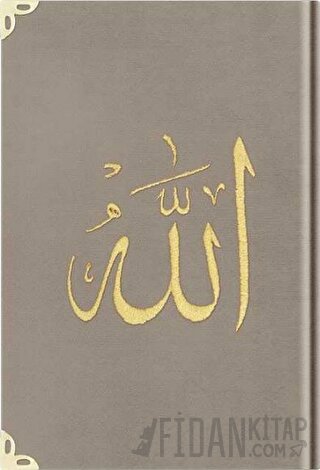 الله
FİDANKİTAP
.com